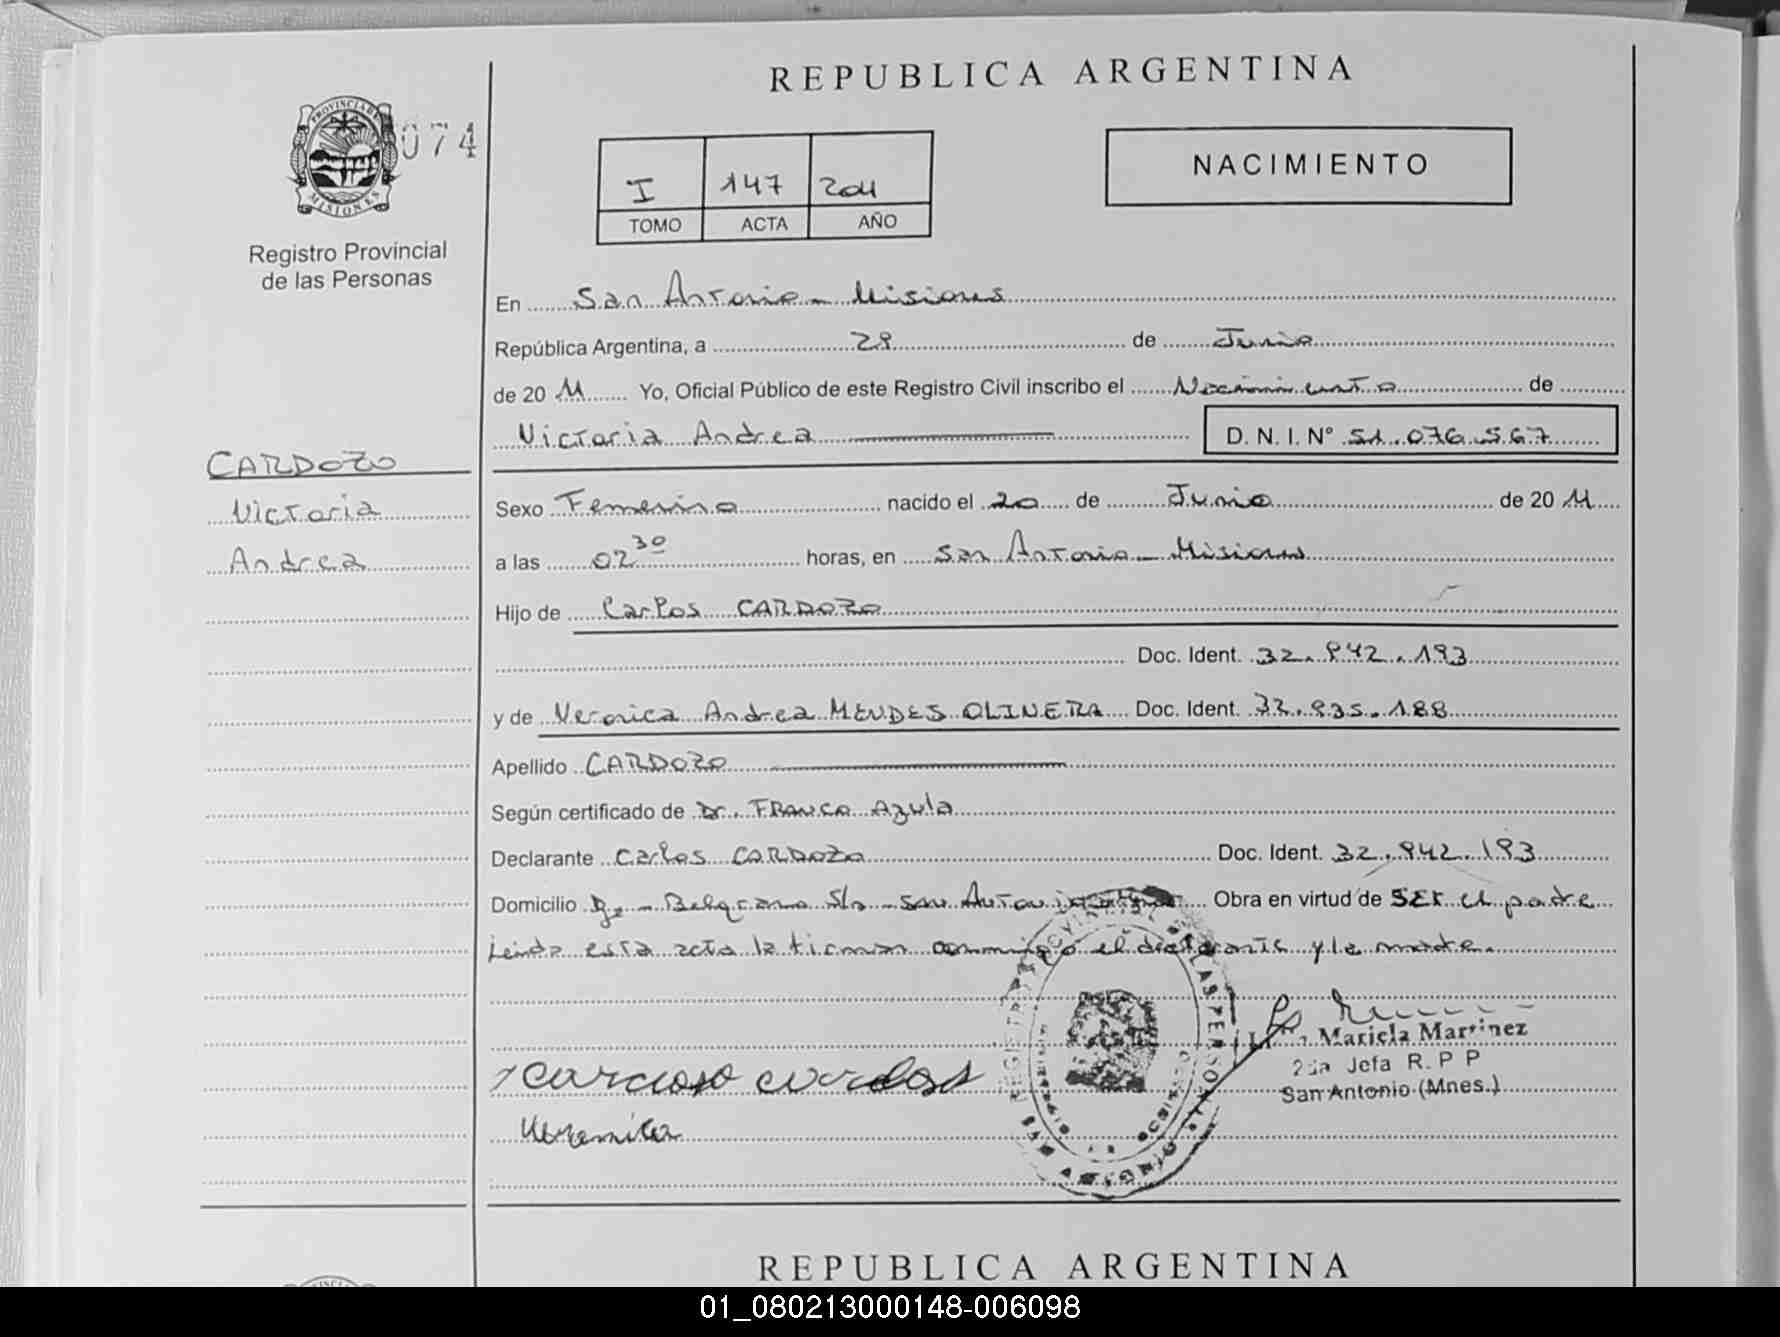 REPUBLICA ARGENTINA
PROVINCIA DE
MISIONES
074
Registro Provincial
de las Personas
I 147 2011
TOMO ACTA AÑO
NACIMIENTO
En San Antonio - Misiones
República Argentina, a 28 de Junio
de 20 11 Yo, Oficial Público de este Registro Civil inscribo el Nacimiento de
Victoria Andrea D. N. I. N° 51.076.567
CARDOZO
Victoria
Andrea
Sexo Femenino nacido el 20 de Junio de 20 11
a las 02 30 horas, en San Antonio - Misiones
Hijo de Carlos CARDOZO
Doc. Ident. 32.842.193
y de Veronica Andrea MENDES OLIVERA Doc. Ident. 32.835.188
Apellido CARDOZO
Según certificado de Dr. FRANCO Azula
Declarante Carlos CARDOZO Doc. Ident. 32.842.193
Domicilio Bo - Belgrano S/n - San Antonio Obra en virtud de SER el padre
Leida esta acta la firman conmigo el declarante y la madre.
cardozo carlos
Veronica
Mariela Martinez
2da Jefa R. P P
San Antonio (Mnes.)
REPUBLICA ARGENTINA
01_080213000148-006098